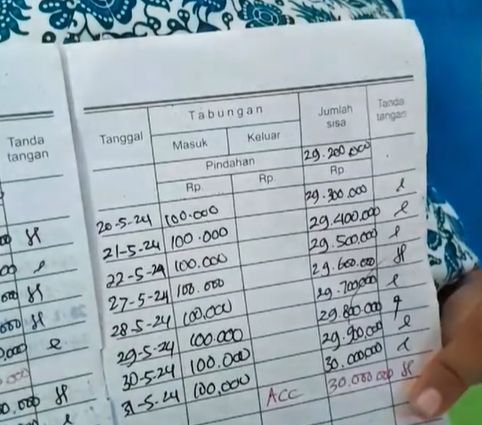 Tanda
tangan
Tanggal
Tabungan
Masuk Keluar
Jumlah
sisa
Tanda
tangan
Pindahan 29.200.000
Rp. Rp. Rp
20-5-24 100.000 29.300.000
21-5-24 100.000 29.400.000
22-5-24 100.000 29.500.000
27-5-24 100.000 29.600.000
28-5-24 100.000 29.700.000
29-5-24 100.000 29.800.000
30-5-24 100.000 29.900.000
31-5-24 100.000 30.000.000
ACC 30.000.000